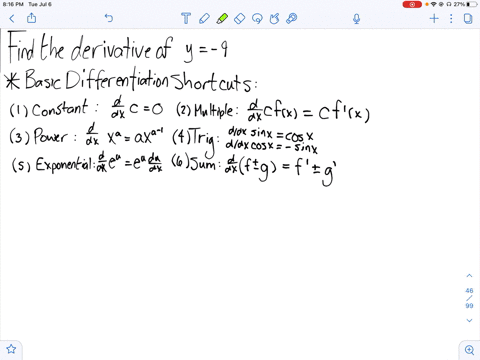 8:16 PM Tue Jul 6
27%
Find the derivative of y = -9
* Basic Differentiation Shortcuts:
(1) Constant: d/dx c = 0 (2) Multiple: d/dx c f(x) = c f'(x)
(3) Power: d/dx x^a = ax^(a-1) (4) Trig: d/dx sinx = cosx
d/dx cosx = -sinx
(5) Exponential: d/dx e^u = e^u du/dx (6) Sum: d/dx (f ± g) = f' ± g'
46
/
99